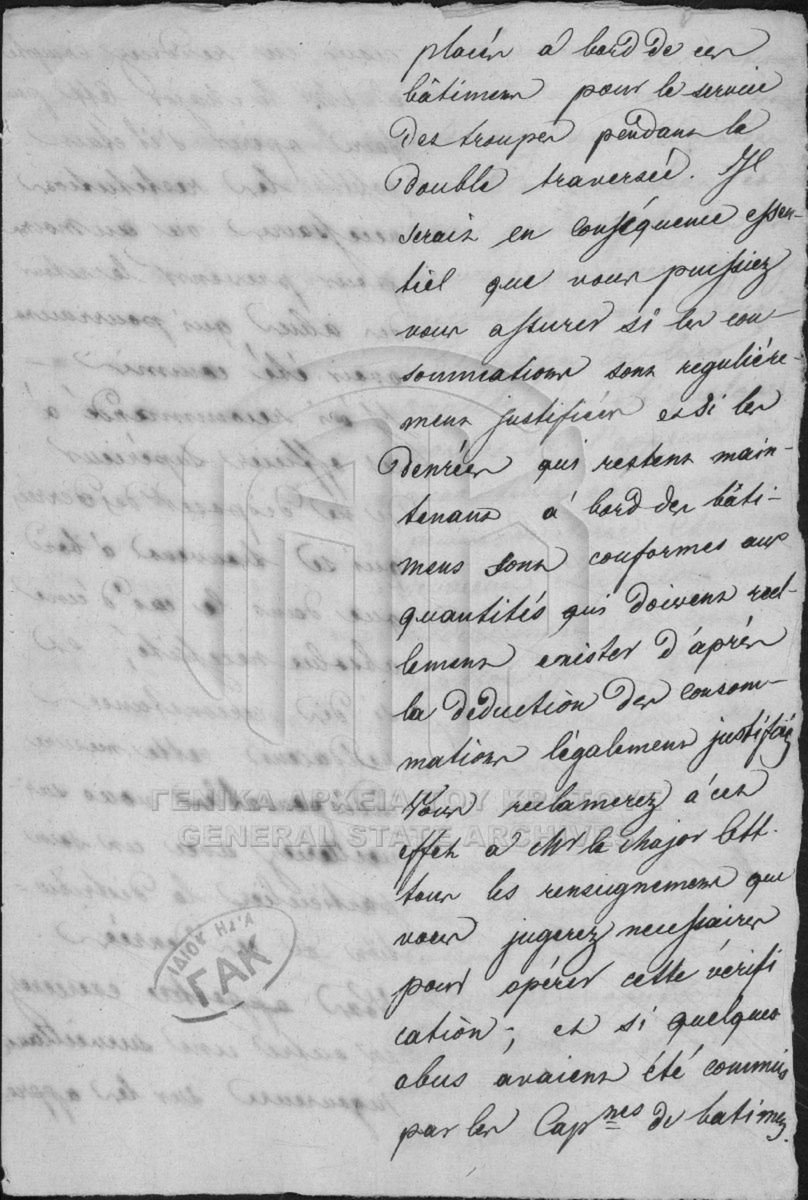 placés à bord de ces
bâtimens pour le service
des troupes pendant la
double traversée. Il
serait en conséquence essen-
tiel que vous puissiez
vous assurer si les con-
sommations sont regulière-
ment justifiées et si les
denrées qui restent main-
tenant à bord des bâti-
mens sont conformes aux
quantités qui doivent réel-
lement exister d'après
la déduction des consom-
mations légalement justifiées
Vous reclamerez à cet
effet à Mr le Major
tous les renseignemens que
vous jugerez necessaires
pour opérer cette vérifi
cation; et si quelques
abus avaient été commis
par les Capnes de batimens.
ΓΕΝΙΚΑ ΑΡΧΕΙΑ ΤΟΥ ΚΡΑΤΟΥΣ
GENERAL STATE ARCHIVES
ΓΑΚ